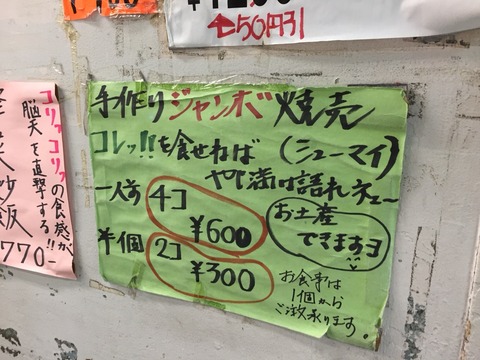 50円引
手作りジャンボ焼売
(シューマイ)
コレッ!!を食せねば
やみ清は語れネェ〜
一人前 4コ
¥600
半個 2コ
¥300
お土産
できますヨ
お食事は
1個から
ご注文承ります。
コリッコリッの食感が
脳天を直撃する!!
炒飯
770-